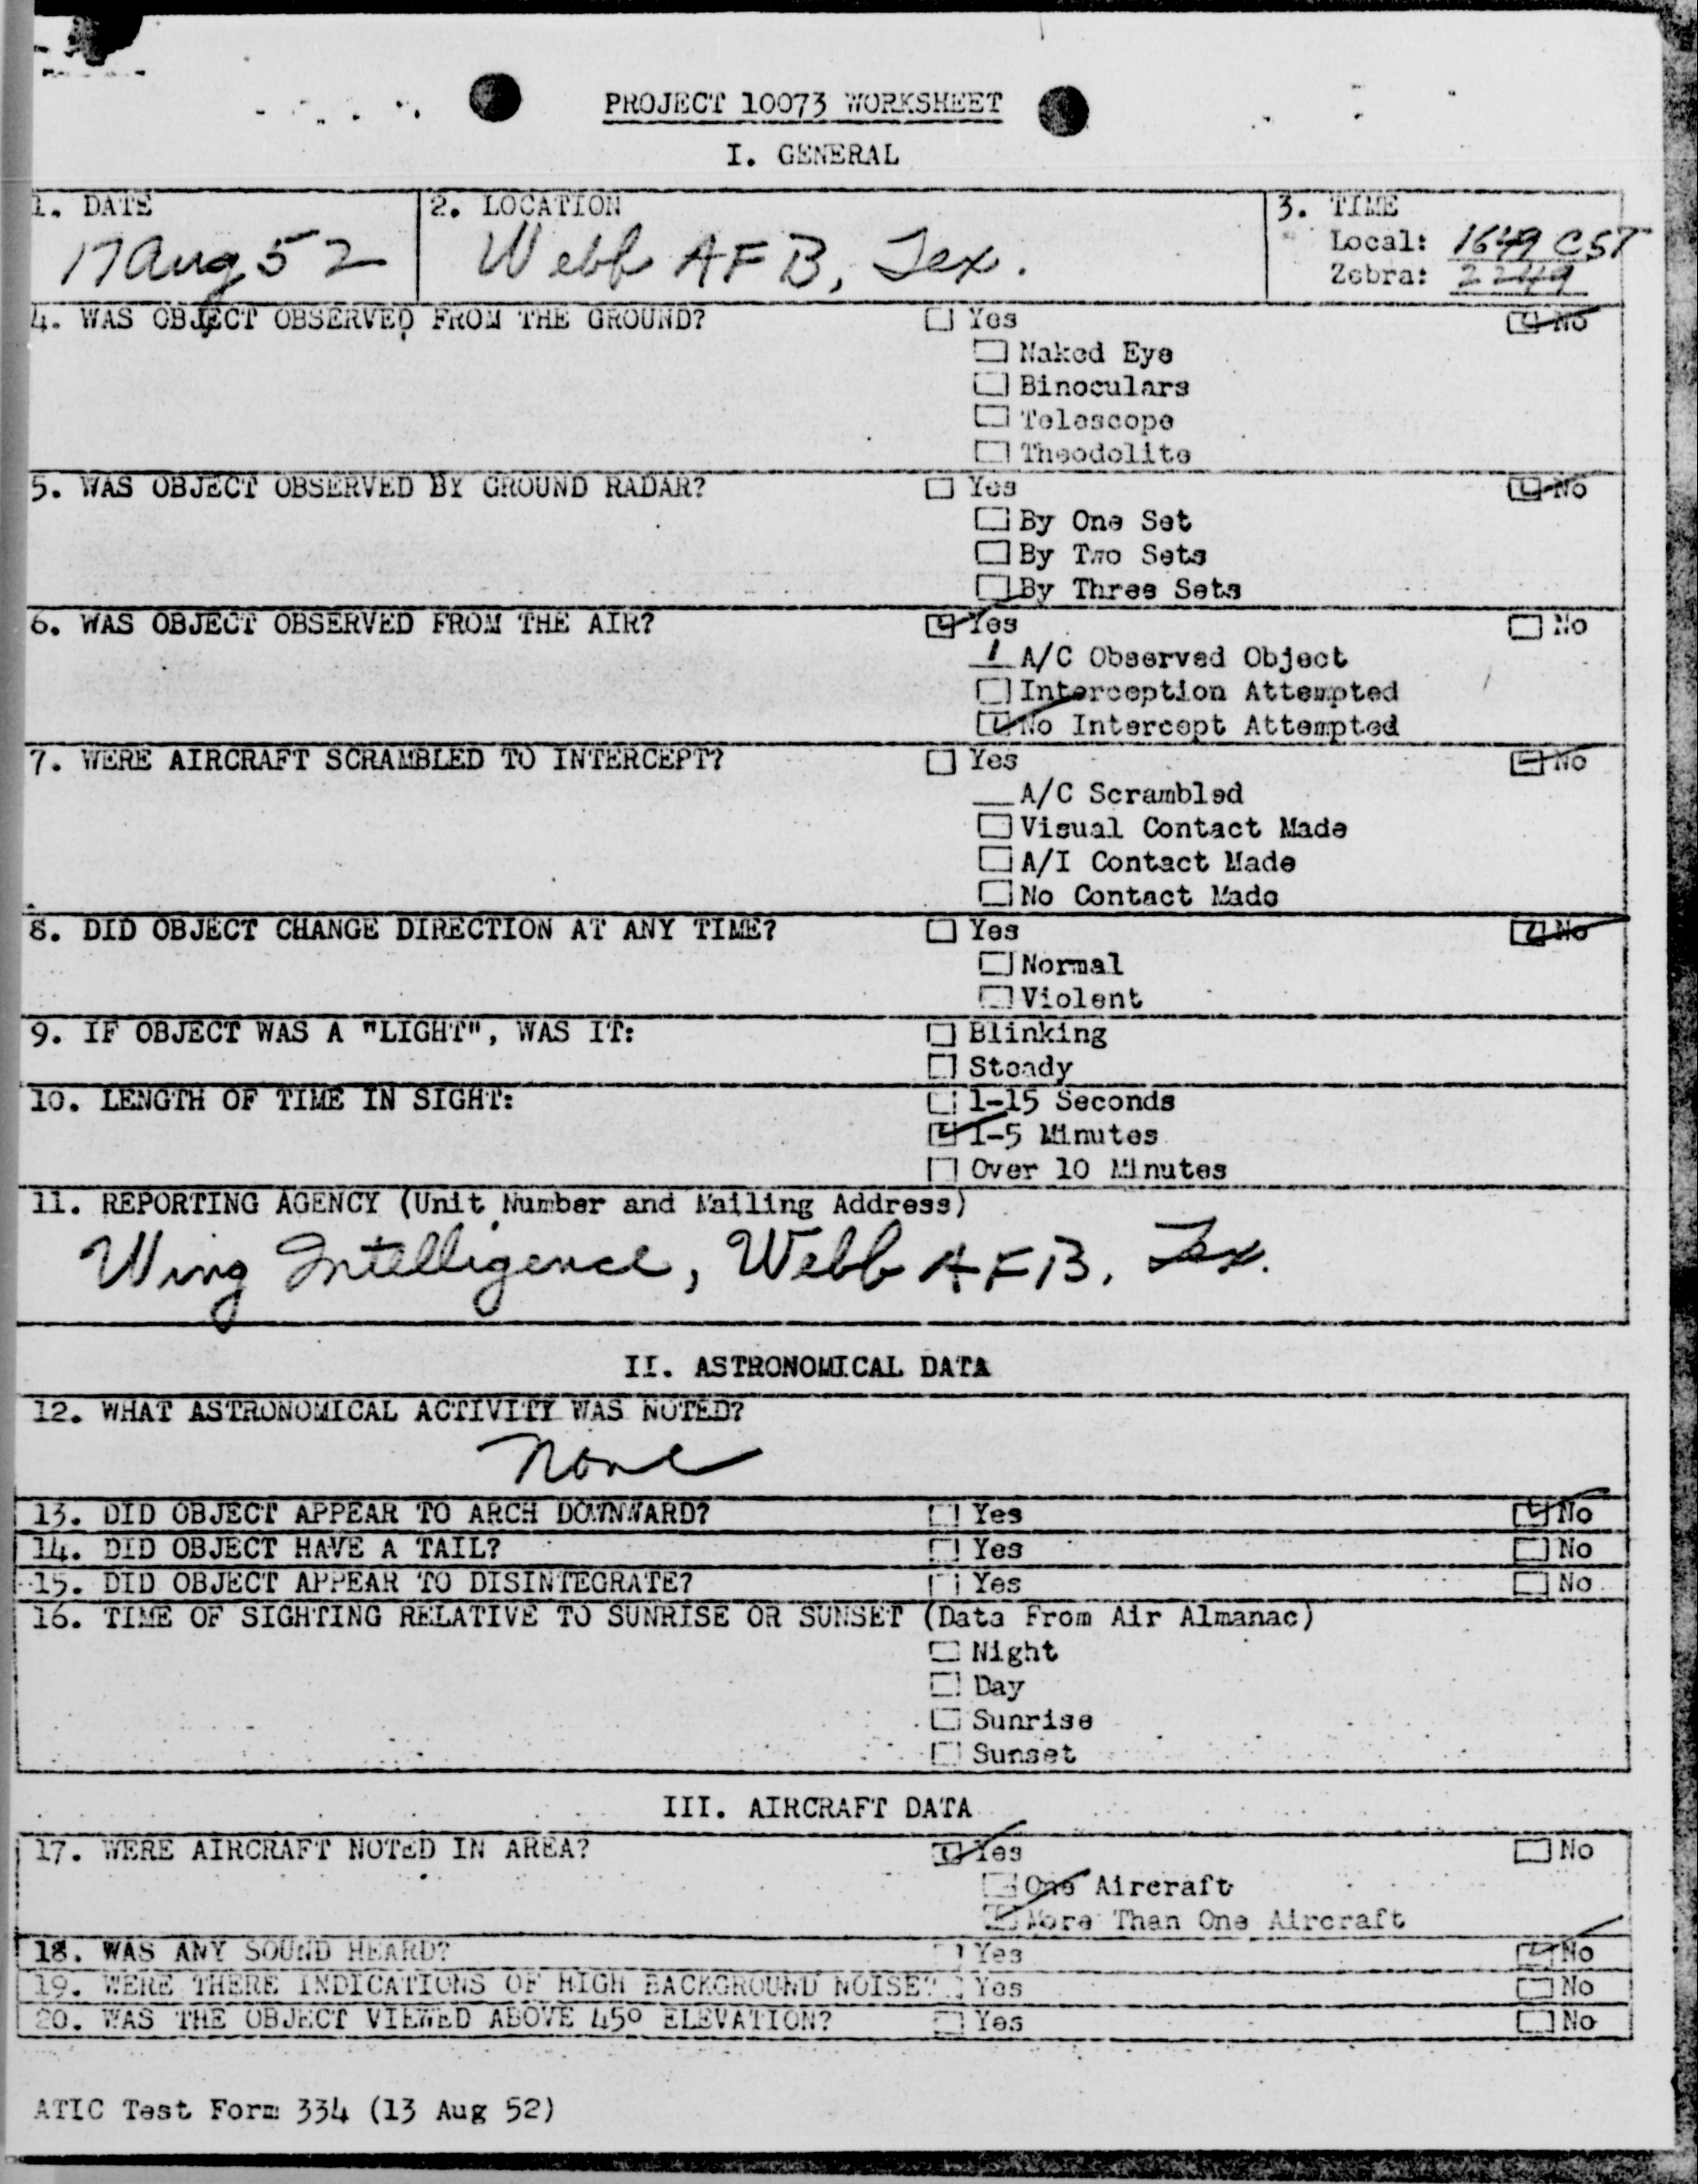 PROJECT 10073 WORKSHEET
I. GENERAL
1. DATE
17 Aug 52
2. LOCATION
Webb AFB, Tex.
3. TIME
Local: 1649 CST
Zebra: 2249
4. WAS OBJECT OBSERVED FROM THE GROUND? Yes No
Naked Eye
Binoculars
Telescope
Theodolite
5. WAS OBJECT OBSERVED BY GROUND RADAR? Yes No
By One Set
By Two Sets
By Three Sets
6. WAS OBJECT OBSERVED FROM THE AIR? Yes No
1 A/C Observed Object
Interception Attempted
No Intercept Attempted
7. WERE AIRCRAFT SCRAMBLED TO INTERCEPT? Yes No
A/C Scrambled
Visual Contact Made
A/I Contact Made
No Contact Made
8. DID OBJECT CHANGE DIRECTION AT ANY TIME? Yes No
Normal
Violent
9. IF OBJECT WAS A "LIGHT", WAS IT: Blinking
Steady
10. LENGTH OF TIME IN SIGHT: 1-15 Seconds
1-5 Minutes
Over 10 Minutes
11. REPORTING AGENCY (Unit Number and Mailing Address)
Wing Intelligence, Webb AFB, Tex.
II. ASTRONOMICAL DATA
12. WHAT ASTRONOMICAL ACTIVITY WAS NOTED?
None
13. DID OBJECT APPEAR TO ARCH DOWNWARD? Yes No
14. DID OBJECT HAVE A TAIL? Yes No
15. DID OBJECT APPEAR TO DISINTEGRATE? Yes No
16. TIME OF SIGHTING RELATIVE TO SUNRISE OR SUNSET (Data From Air Almanac)
Night
Day
Sunrise
Sunset
III. AIRCRAFT DATA
17. WERE AIRCRAFT NOTED IN AREA? Yes No
One Aircraft
More Than One Aircraft
18. WAS ANY SOUND HEARD? Yes No
19. WERE THERE INDICATIONS OF HIGH BACKGROUND NOISE? Yes No
20. WAS THE OBJECT VIEWED ABOVE 45° ELEVATION? Yes No
ATIC Test Form 334 (13 Aug 52)